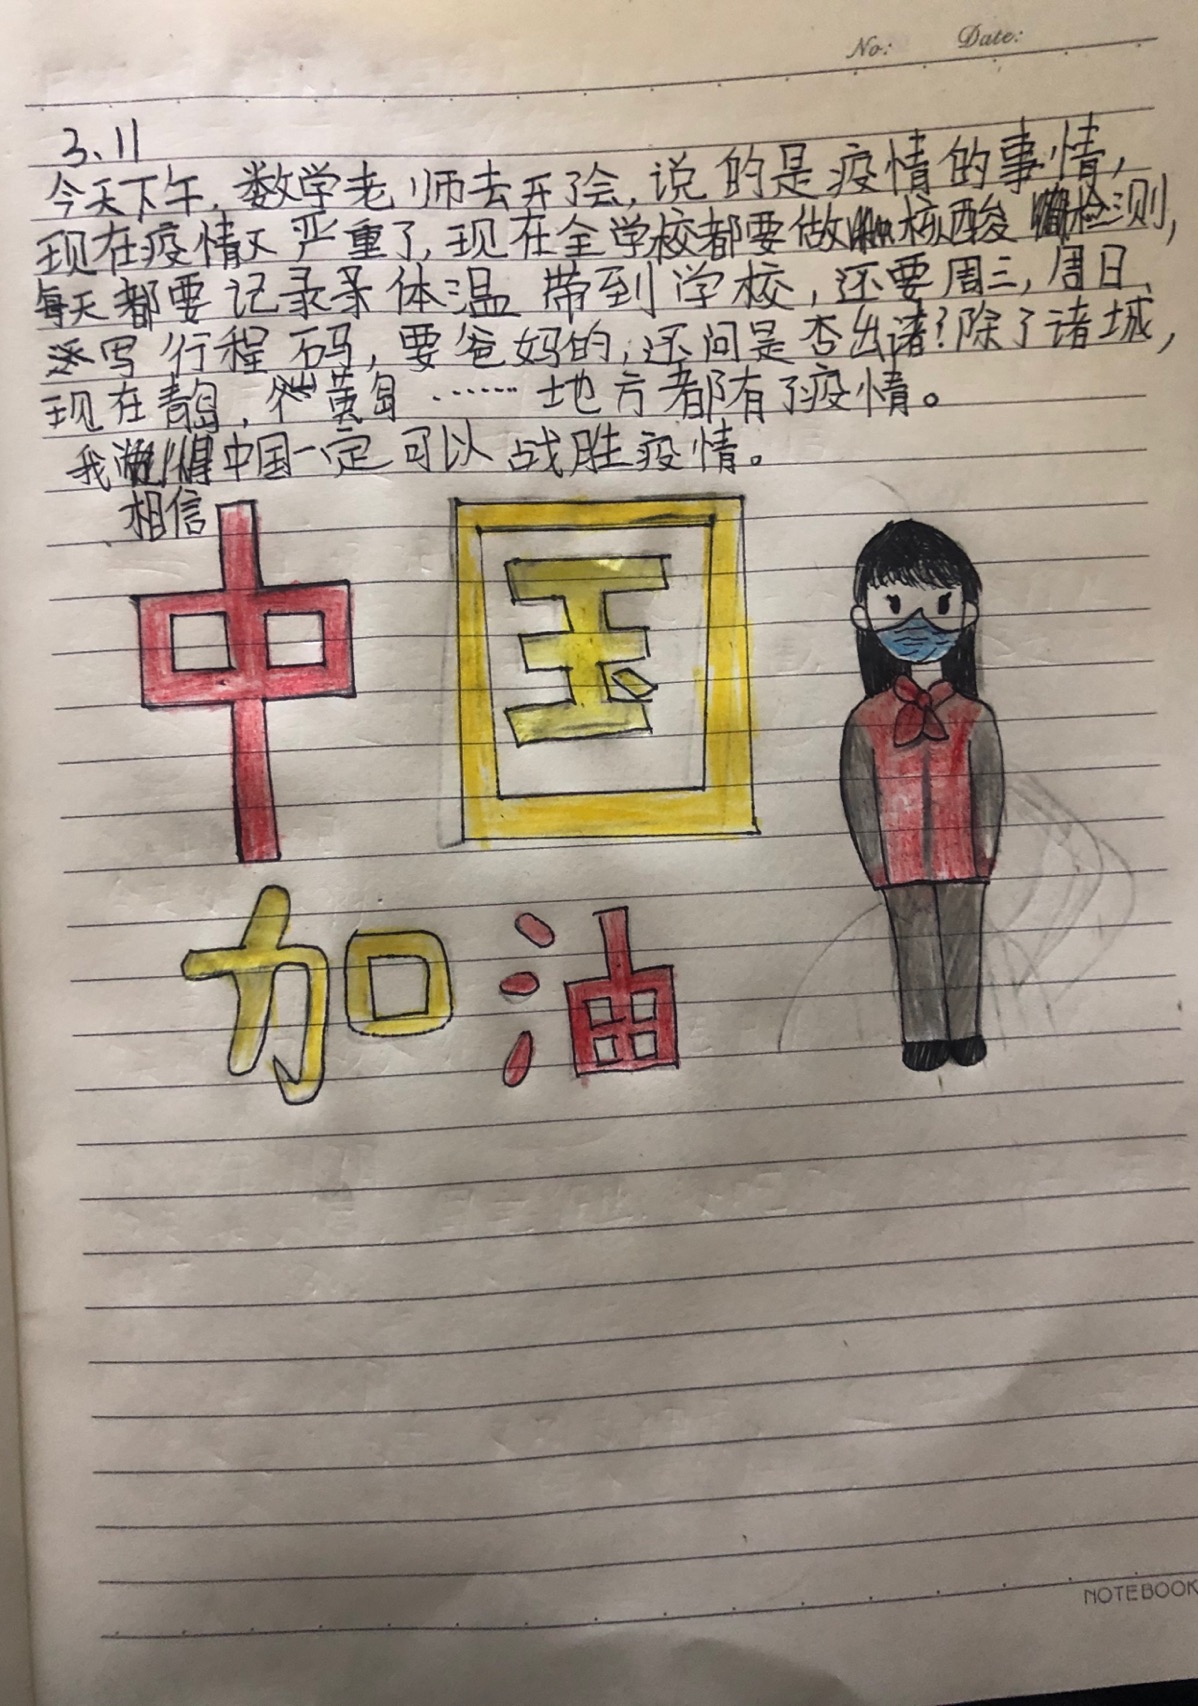 No: Date:
3、11
今天下午，数学老师去开了会，说的是疫情的事情，
现在疫情又严重了，现在全学校都要做核酸检测，
每天都要记录录体温带到学校，还要周三，周日、
写行程码，要爸妈的，还问是否出诸？除了诸城，
现在青岛，黄岛……地方都有了疫情。
我相信中国一定可以战胜疫情。
中国
加油
NOTEBOOK